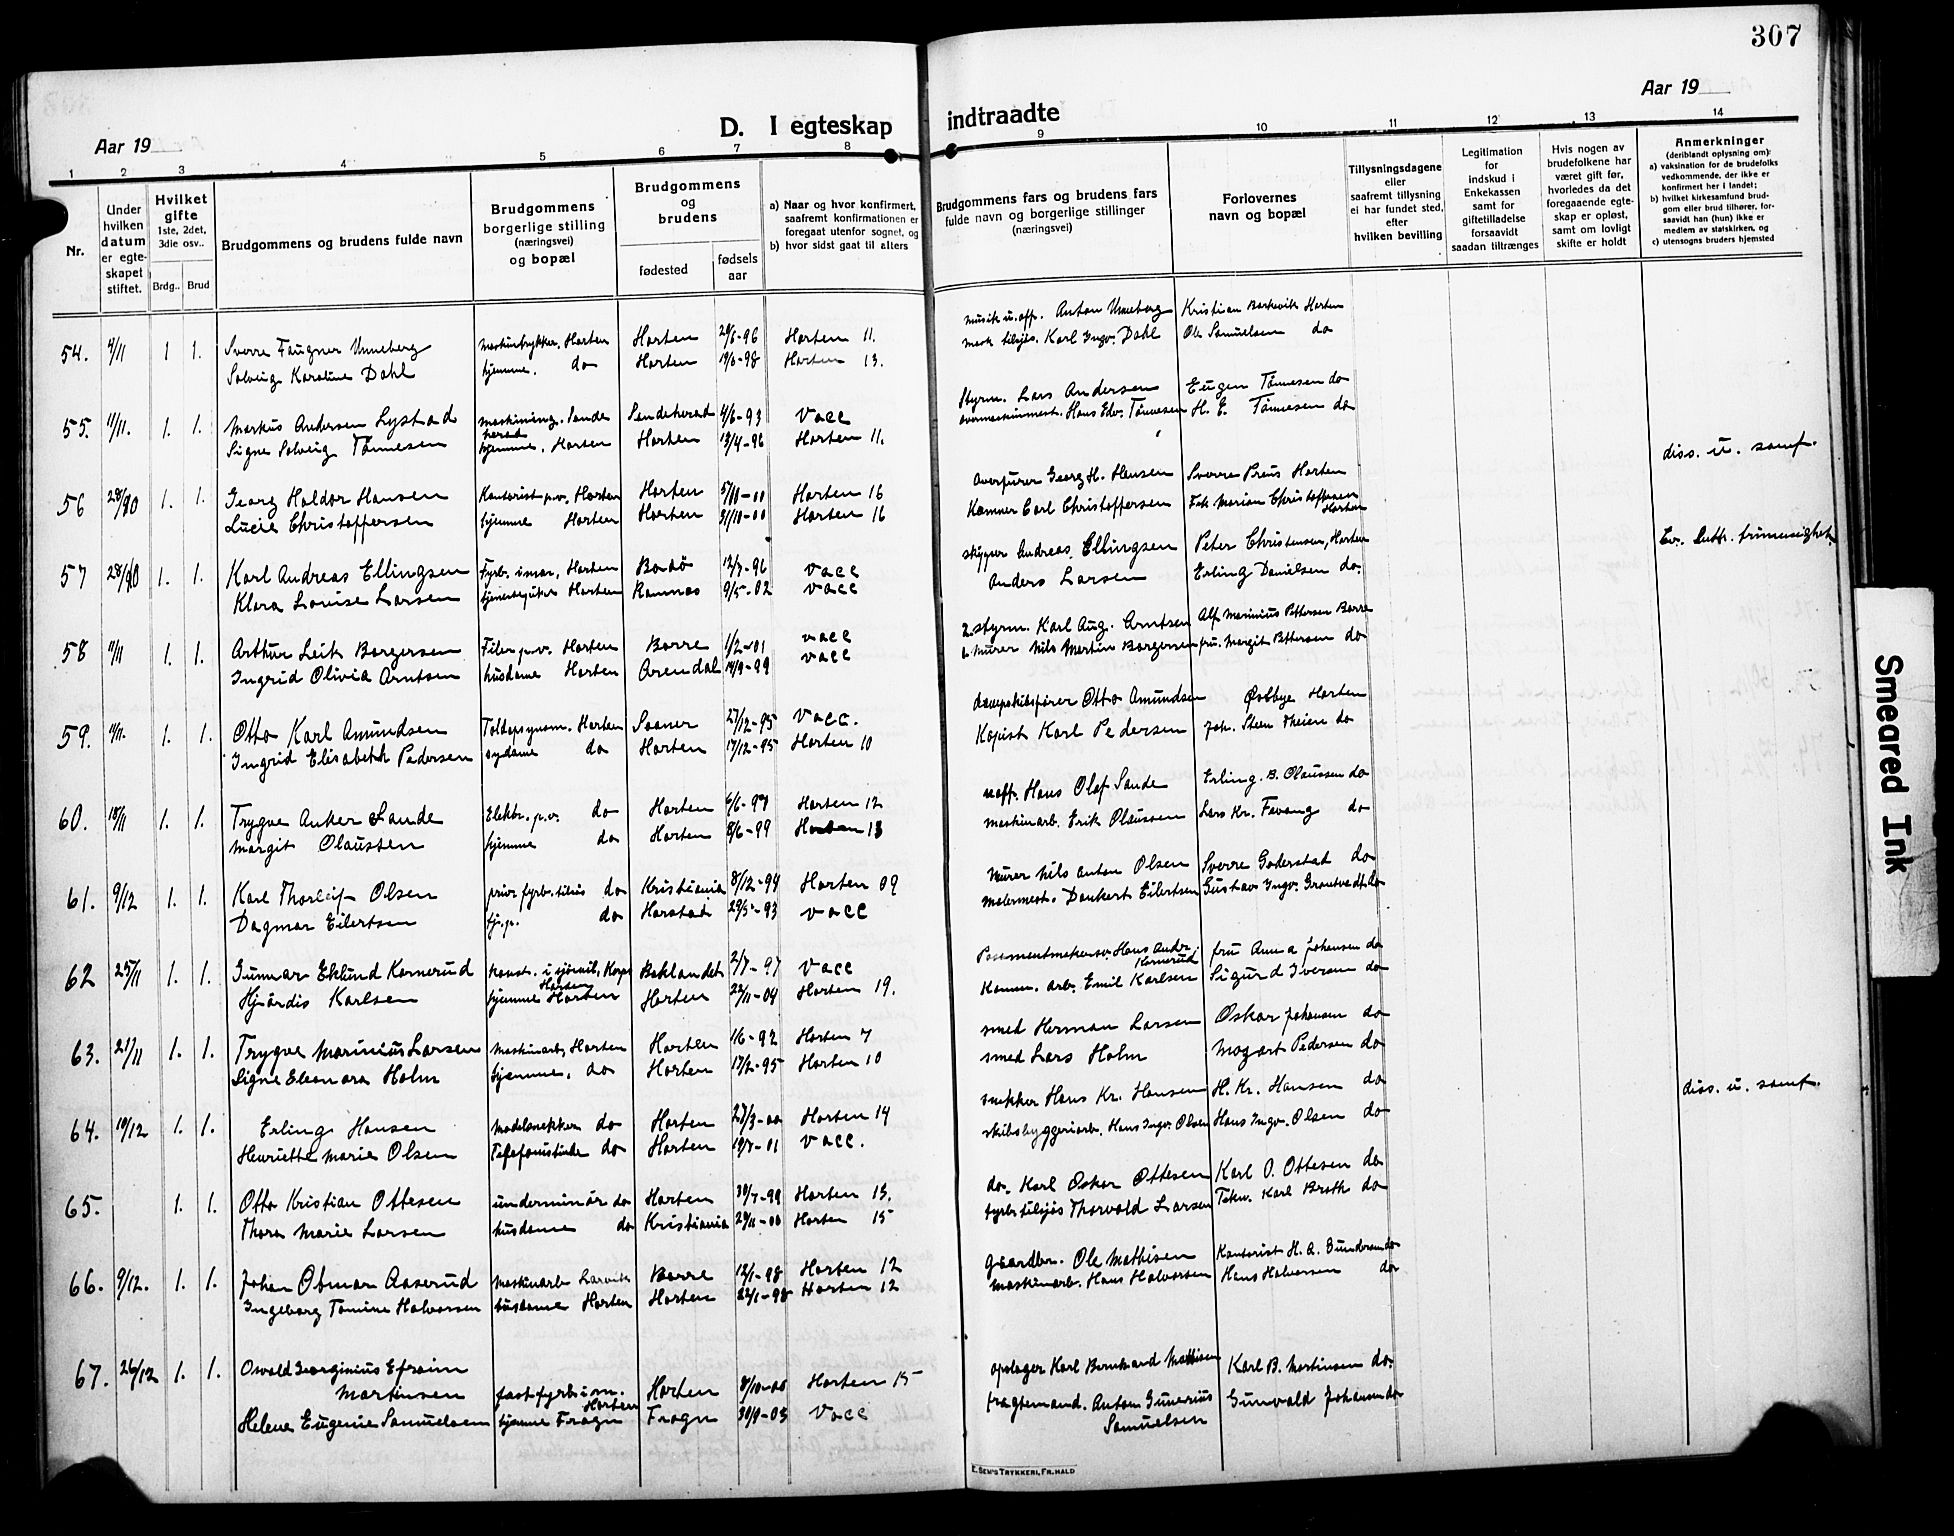 307
Aar 19
Aar 19
D. I egteskap indtraadte
1 2 3 4 5 6 7 8 9 10 11 12 13 14
Nr.
Under hvilken datum er egteskapet stiftet.
Hvilket gifte 1ste, 2det, 3die osv..
Brdg.. Brud
Brudgommens og brudens fulde navn
Brudgommens borgerlige stilling (næringsvei) og bopæl
Brudgommens og brudens
fødested
fødsels aar
a) Naar og hvor konfirmert, saafremt konfirmationen er foregaat utenfor sognet, og
b) hvor sidst gaat til alters
Brudgommens fars og brudens fars fulde navn og borgerlige stillinger (næringsvei)
Forlovernes navn og bopæl
Tillysningsdagene eller saafremt tillysning ei har fundet sted, efter hvilken bevilling
Legitimation for indskud i Enkekassen samt for giftetilladelse forsaavidt saadan tiltrænges
Hvis nogen av brudefolkene har været gift før, hvorledes da det foregaaende egteskap er opløst, samt om lovligt skifte er holdt
Anmerkninger
(deriblandt oplysning om):
a) vaksination for de brudefolks vedkommende, der ikke er konfirmert her i landet;
b) hvilket kirkesamfund brudgom eller brud tilhører, forsaavidt han (hun) ikke er medlem av statskirken, og
c) utensogns bruders hjemsted
54. 4/11 1 1. Sverre Faugner Unneberg Horten Horten 29/6-96 Horten 11. musik u.off. Anton Unneberg Kristian Borkevik Horten
Solveig Karoline Dahl hjemme. do Horten 19/6-98 Horten 13. Karl Ingv. Dahl Ole Samuelsen do
55. 11/11. 1. 1. Markus Andersen Lystad Sande herred 4/6-93 Vacc Styrm. Lars Andersen Eugen Tønnesen do
Signe Solveig Tønnesen hjemme, Horten Horten 13/4-96 Horten 11. Hans Edv. Tønnesen H. E. Tønnesen do
56 28/10 1. 1. Georg Haldor Hansen Kontorist p.v. Horten Horten 5/11-00 Horten 16 Georg H. Hansen Sverre Preus Horten diss. u. samf.
Lucie Christoffersen hjemme Horten Horten 31/10-00 Horten 16 Carl Christoffersen Frk Marion Christoffersen Horten
57 28/10 1. 1. Karl Andreas Ellingsen Fyrb. i mar, Horten Bodø 12/7-96 Vacc skipper Andreas Ellingsen Peter Christensen, Horten Ev. luth. frimenighet.
Klara Lovise Larsen Horten Ramnes 9/5-02 Vacc Anders Larsen Erling Danielsen do.
58 11/11 1. 1. Arthur Leik Borgersen Filer p.v. Horten Borre 1/2-01 Vacc 2. styrm. Karl Aug. Arntsen Alf Marinius Pettersen Borre
Ingrid Olivia Arntsen husdame Horten Arendal 14/9-99 Vacc Murer Nils Martin Borgersen fru. Margit Pettersen do
59. 11/11. 1. 1. Otto Karl Amundsen Horten Sooner 27/12-95 Vacc. Otto Amundsen Østbye Horten
Ingrid Elisabeth Pedersen sydame do Horten 17/12-95 Horten 10 Kopist Karl Pedersen Joh. Steen Theien do
60. 18/11 1. 1. Trygve Anker Sande Elektr. p.v. do Horten 6/6-97 Horten 12 u.off. Hans Olaf Sande Erling. B. Olaussen do
Margit Olaussen hjemme do Horten 8/6-99 Horten 13 maskinarb. Erik Olaussen Lars Kr. Fevang do
61. 9/12 1. 1. Karl Thorleif Olsen do Kristiania 8/12-94 Horten 09 Murer Nils Anton Olsen Sverre Goderstad do
Dagmar Eilertsen do Harstad 29/5-93 Vacc malermest. Dankert Eilertsen Gustav Ingv. Grantvedt do
62 25/11 1. 1. Gunnar Eklund Kornerud Horten Baklandet 2/7-97 Vacc Hans Andr. Kornerud fru Anna Johansen do
Hjørdis Karlsen hjemme Horten Horten 22/11-04 Horten 19. Komm. arb. Emil Karlsen Sigurd Iversen do
63. 21/11 1. 1. Trygve Marinius Larsen Maskinarb, Horten Horten 1/6-92 Horten 7 smed Herman Larsen Oskar Johansen do
Signe Eleonora Holm hjemme, do Horten 17/2-95 Horten 10 smed Lars Holm Mozart Pedersen do
64. 10/12 1. 1. Erling Hansen Modelsnekker do Horten 27/3-00 Horten 14 snekker Hans Kr. Hansen H. Kr. Hansen do diss. u. samf.
Henriette Marie Olsen Telefonistinde do Horten 19/7-01 Vacc. skibsbyggeriarb. Hans Ingv. Olsen Hans Ingv. Olsen do
65. 1. 1. Otto Kristian Ottesen underminør do Horten 30/7-99 Horten 15. do. Karl Oskar Ottesen Karl O. Ottesen do
Thora Marie Larsen husdame do Kristiania 29/11-00 Horten 15 Thorvald Larsen Karl Broth do
66. 9/12. 1. 1. Johan Otmar Aaserud Maskinarb Larvik Borre 12/1-98 Horten 12 gaardbr. Ole Mathisen Kontorist H. A. Gundersen do
Ingeborg Tomine Halvorsen husdame Horten Horten 22/1-98 Horten 12 maskinarb. Hans Halvorsen Hans Halvorsen do
67. 26/12 1. 1. Osvald Georginius Efraim Martinsen fast fyrb i m. Horten Horten 8/10-00 Horten 15 opslager Karl Bernhard Karl B. Martinsen do.
Helene Eugenie Samuelsen hjemme Frogn Frogn 30/9-03 Vacc fragtemand. Anton Gunerius Samuelsen Gunvald Johansen do
E. SEM'S TRYKKERI, FR.HALD
Smeared Ink